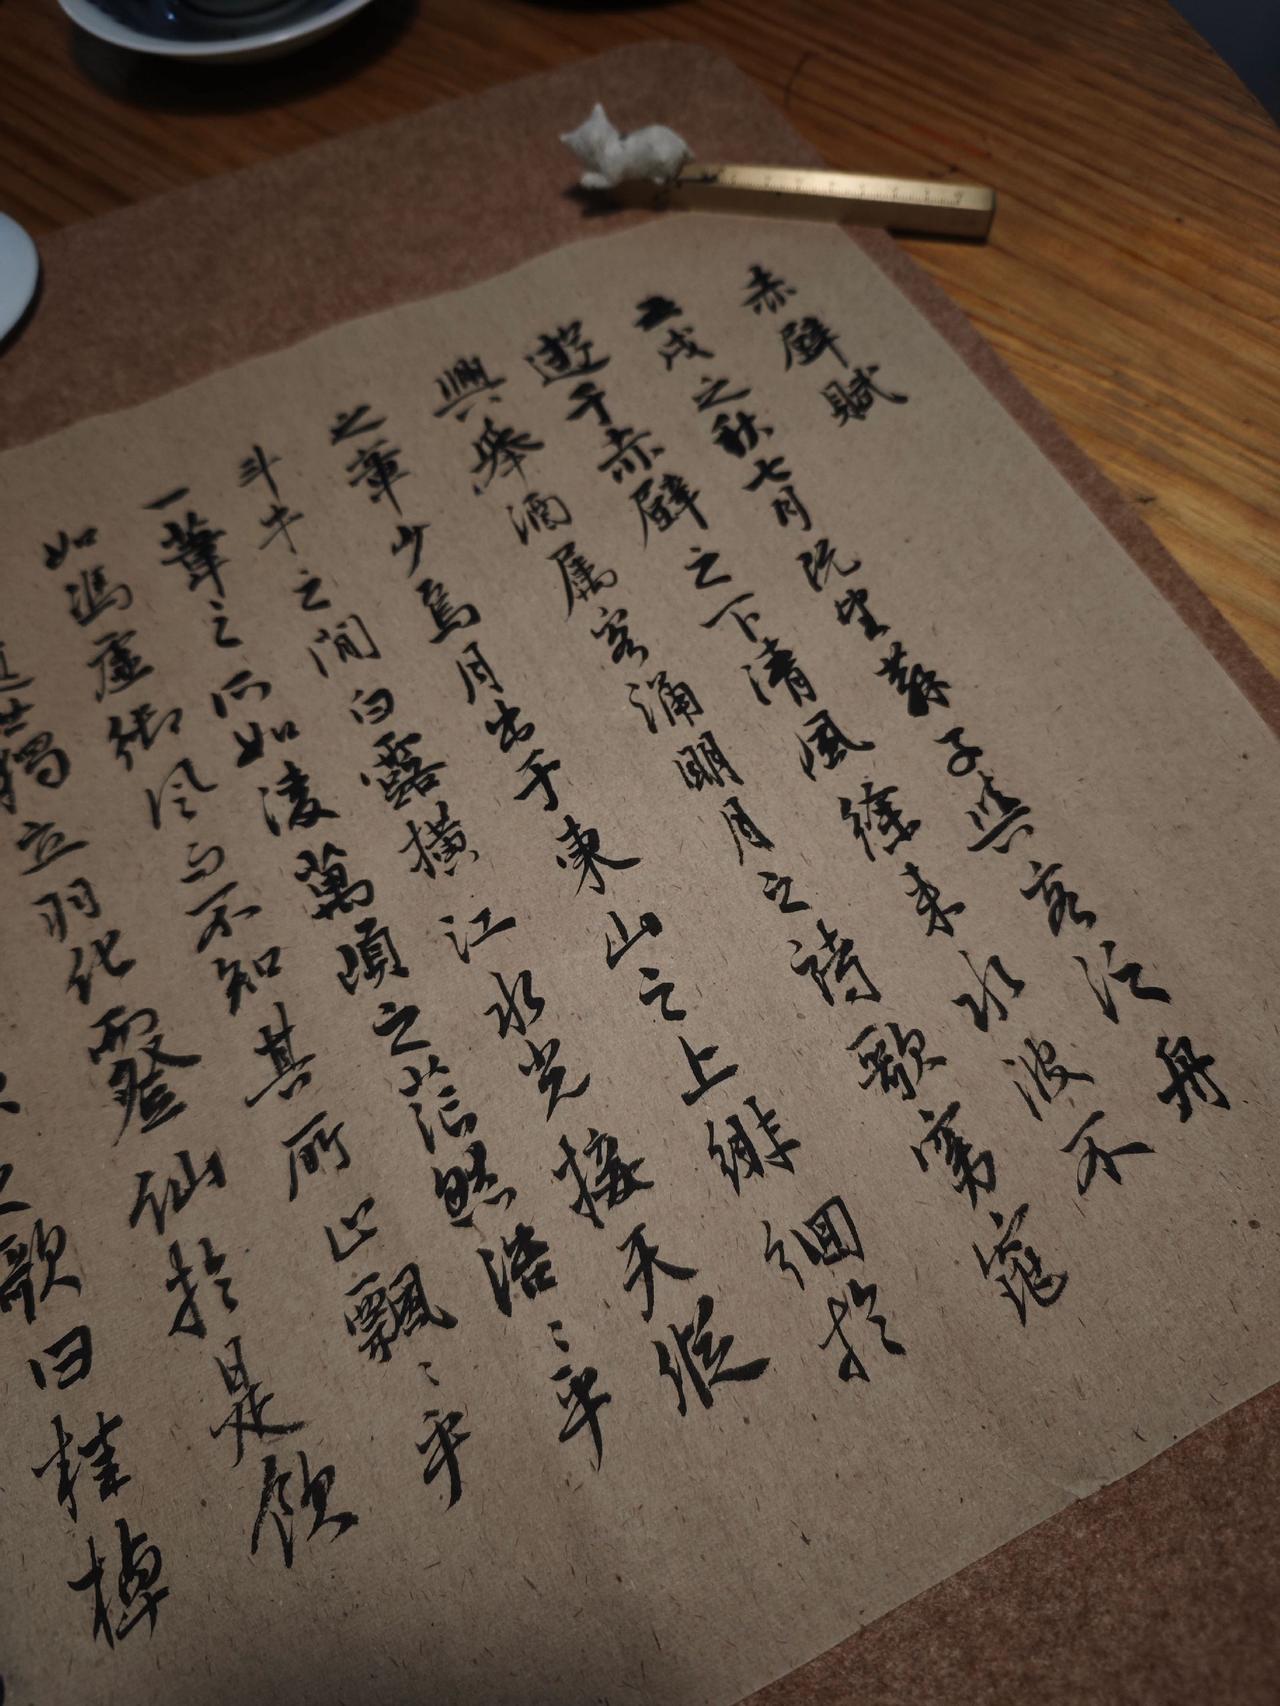 赤壁賦
壬戌之秋七月既望蘇子與客泛舟
遊于赤壁之下清風徐來水波不
興舉酒属客誦明月之詩歌窈窕
之章少焉月出于東山之上徘徊於
斗牛之間白露橫江水光接天縱
一葦之所如淩萬頃之茫然浩〻乎
如馮虛御風而不知其所止飄〻乎
獨立羽化而登仙於是飲
歌曰桂棹